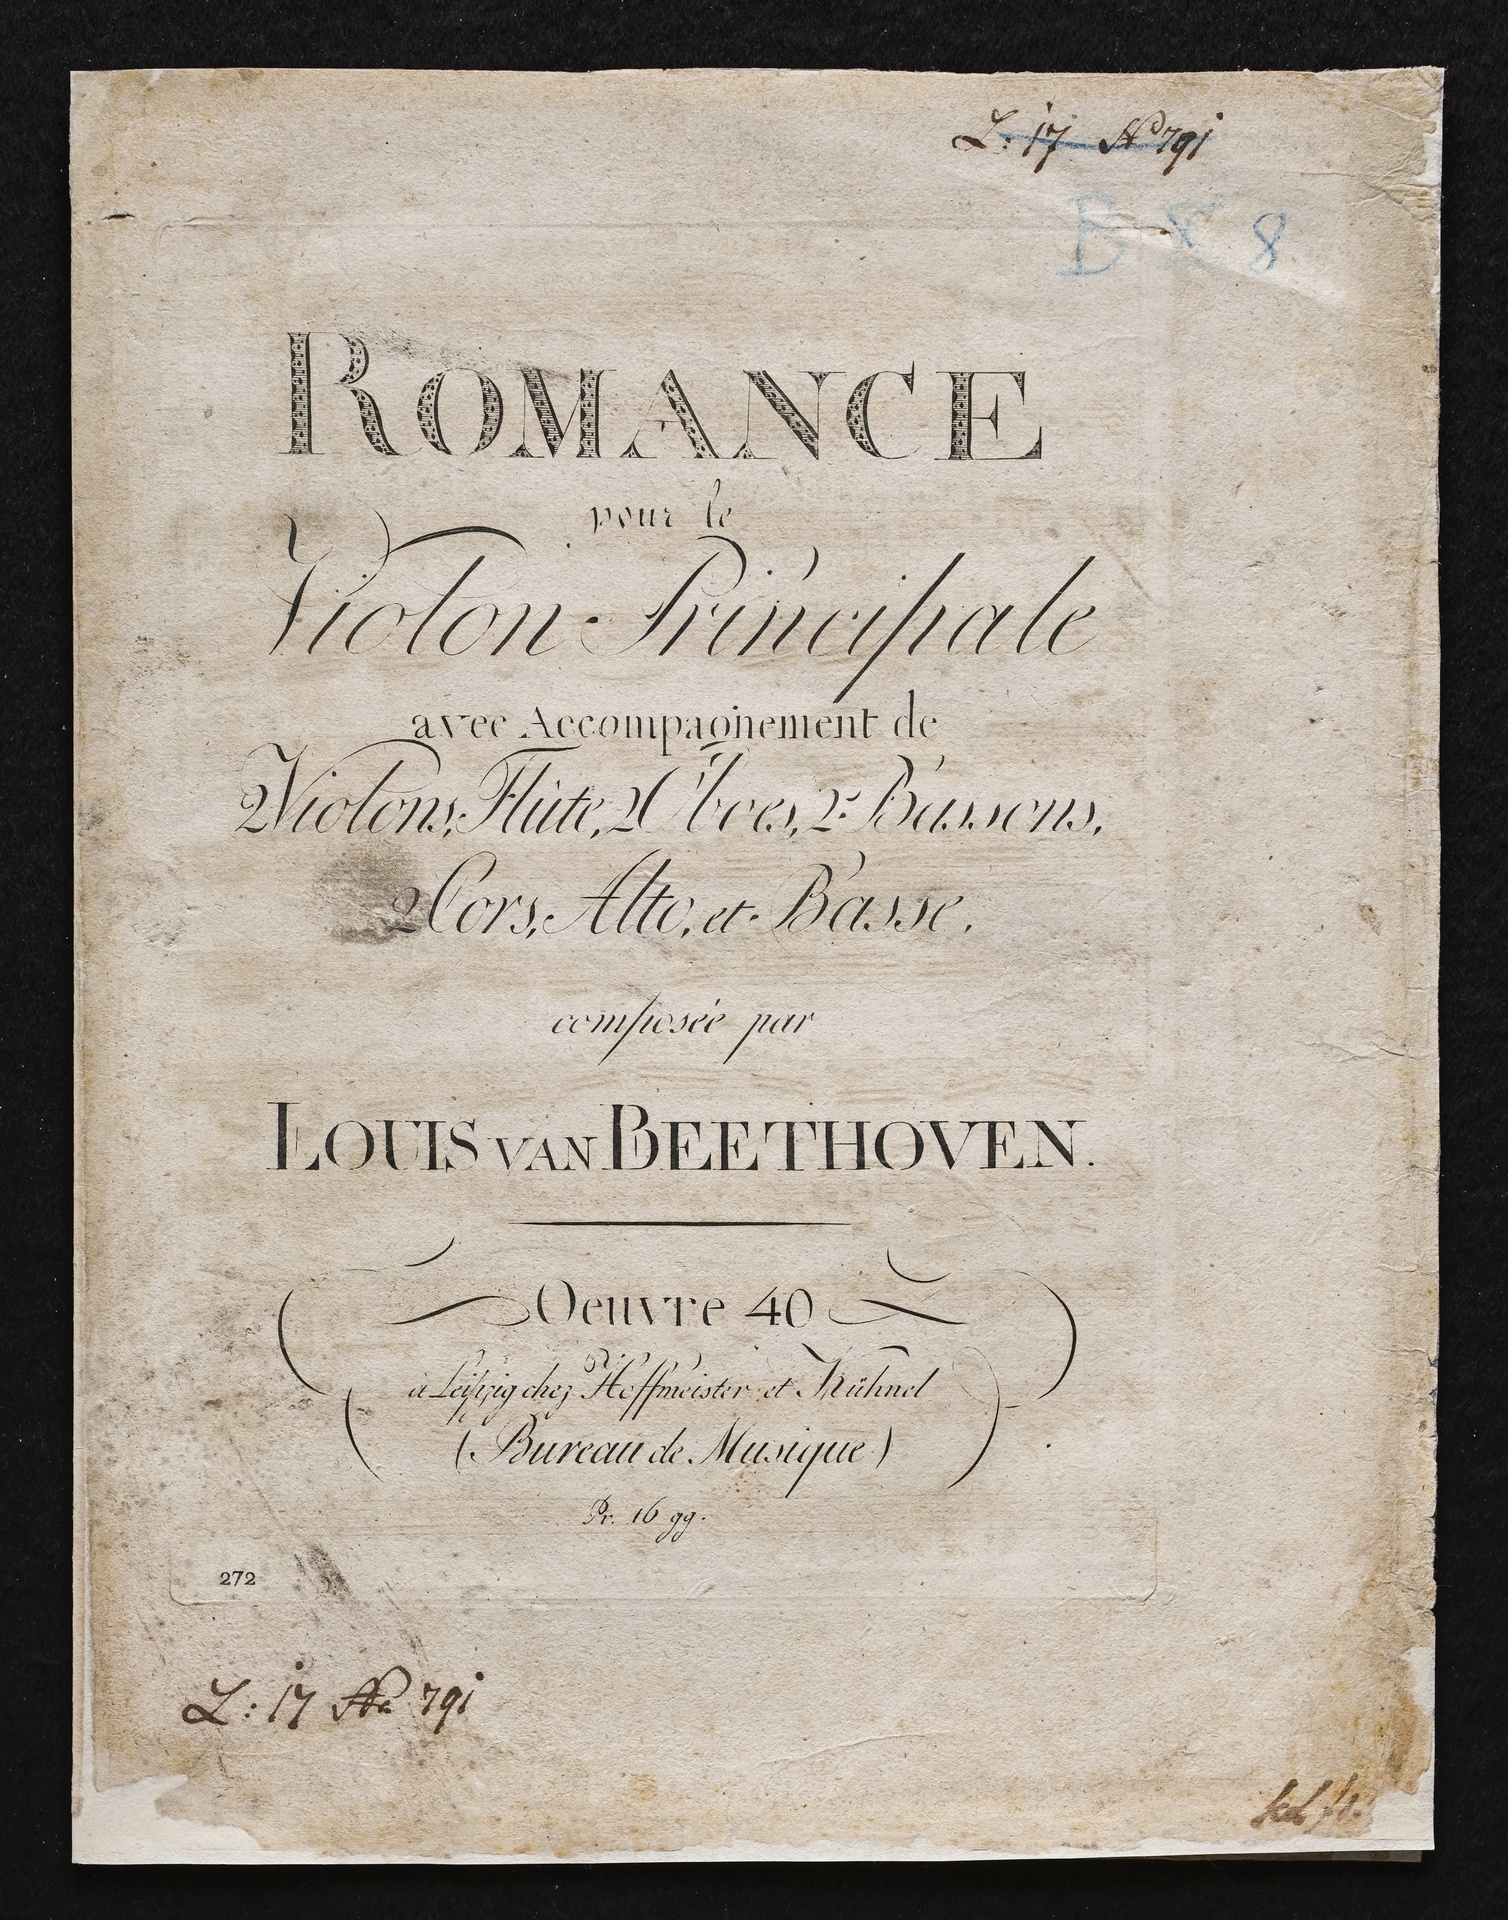 L: 17 No 791
B 8
ROMANCE
pour le
Violon Principale
avec Accompagnement de
2 Violons, Flûte, 2 Oboes, 2 Bassons,
2 Cors, Alto, et Basse.
composée par
LOUIS VAN BEETHOVEN.
Oeuvre 40
à Leipzig chez Hoffmeister et Kühnel
(Bureau de Musique)
Pr. 16 gg.
272
L: 17 No 791